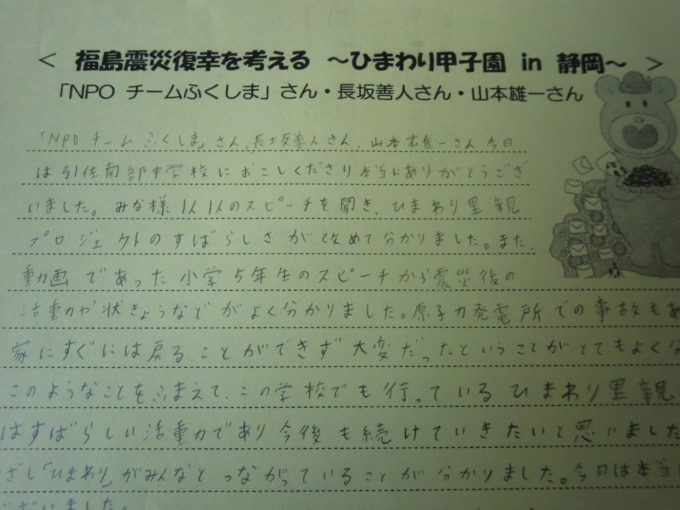 ＜ 福島震災復幸を考える ～ひまわり甲子園 in 静岡～ ＞
「NPO チームふくしま」さん・長坂善人さん・山本雄一さん
「NPO チームふくしま」さん、長坂善人さん、山本雄一さん今日
は引佐南部中学校におこしくださり本当にありがとうござ
いました。みな様1人1人のスピーチを聞き、ひまわり里親
プロジェクトのすばらしさが改めて分かりました。また、
動画であった小学5年生のスピーチから震災後の
活動や状きょうなどがよく分かりました。原子力発電所での事故もあ
家にすぐには戻ることができず大変だったということがとてもよく分
このようなことをふまえて、この学校でも行っているひまわり里親
はすばらしい活動であり今後も続けていきたいと思いました
ざし「ひまわり」がみんなとつながっていることが分かりました。今日は本当
ございました。